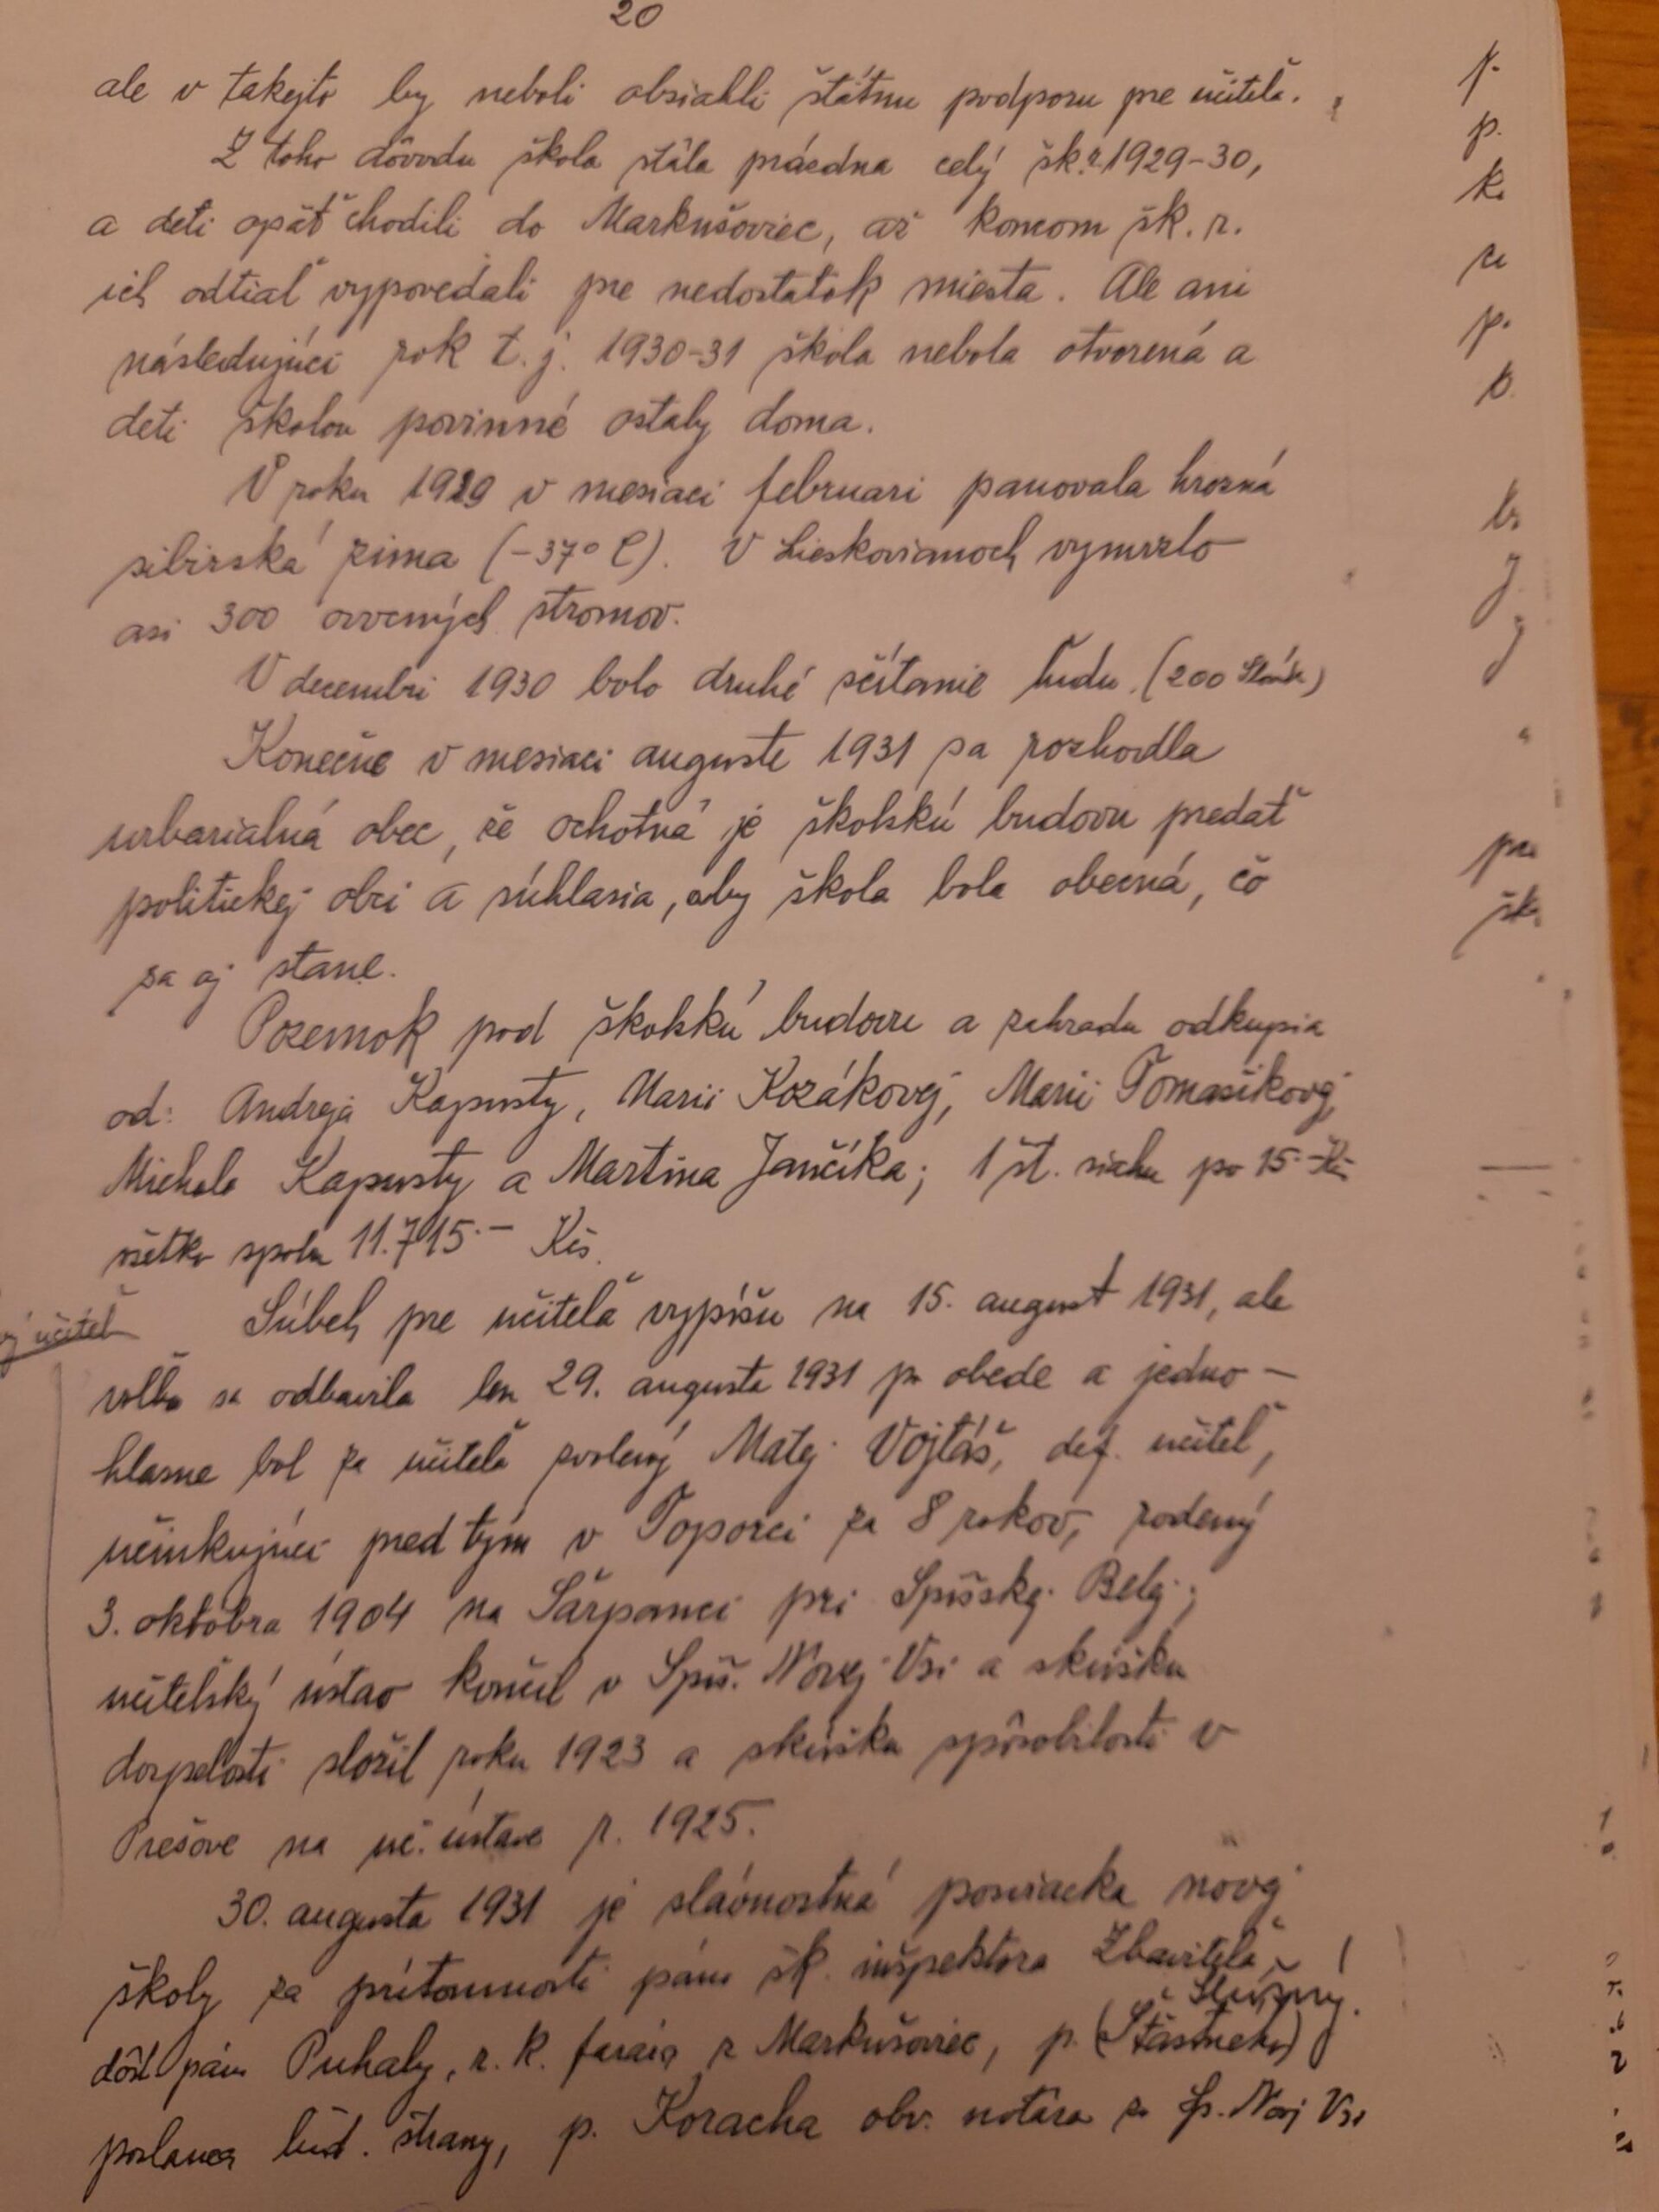 20
ale v takejto by neboli obsiahli štátnu podporu pre učiteľa.
Z toho dôvodu škola stála prázdna celý šk. r. 1929-30,
a deti opäť chodili do Markušoviec, až koncom šk. r.
ich odtiaľ vypovedali pre nedostatok miesta. Ale ani
následujúci rok t. j. 1930-31 škola nebola otvorená a
deti školou povinné ostaly doma.
V roku 1929 v mesiaci februari panovala hrozná
sibirská zima (-37° C). V Lieskovianoch vymrzlo
asi 300 ovocných stromov.
V decembri 1930 bolo druhé sčítanie ľudu. (200 Slovák)
Konečne v mesiaci auguste 1931 sa rozhodla
urbarialná obec, že ochotná je školskú budovu predať
politickej obci a súhlasia, aby škola bola obecná, čo
sa aj stane.
Pozemok pod školskú budovu a zahradu odkupia
od: Andreja Kapusty, Marii Kozákovej, Marii Tomašikovej,
Michala Kapusty a Martina Jančíka; 1 št. siahu po 15.- Kč
všetko spolu 11.715.- Kčs.
učiteľ
Súbeh pre učiteľa vypíšu na 15. august 1931, ale
voľba sa odbavila len 29. augusta 1931 po obede a jedno-
hlasne bol za učiteľa zvolený Matej Vojtáš, def. učiteľ,
účinkujúci pred tým v Toporci za 8 rokov, rodený
3. oktobra 1904 na Šarpanci pri Spišskej Belej;
učiteľský ústav končil v Spiš. Novej Vsi a skúšku
dospelosti složil roku 1923 a skúšku spôsobilosti v
Prešove na uč. ústave r. 1925.
30. augusta 1931 je slávnostná posviacka novej
školy za prítomnosti pána šk. inšpektora Zbaviteľa,
dôst. pána Puhaly, r. k. farára z Markušoviec, p. (Šťastného)
poslanca ľud. strany, p. Koracha obv. notára zo Sp. Novej Vsi